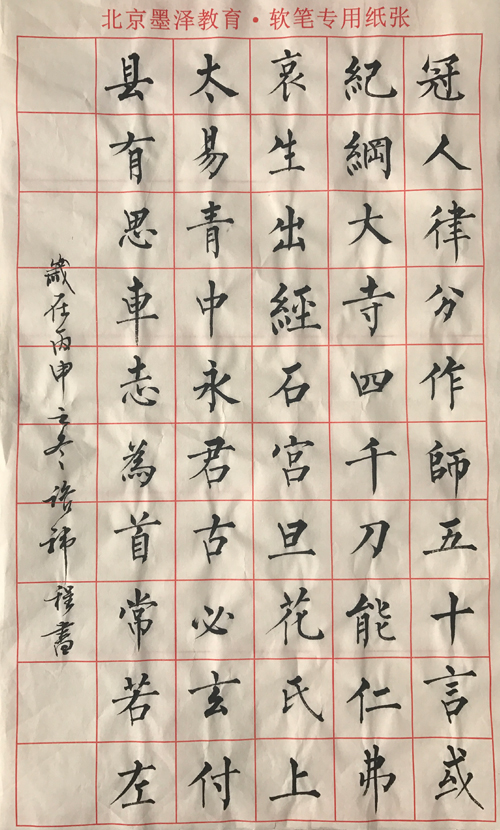 北京墨泽教育·软笔专用纸张
冠人律分作師五十言或
紀綱大寺四千刀能仁弗
哀生出經石宮旦花氏上
太易青中永君古必玄付
县有思車志為首常若左
歲在丙申立冬
程書